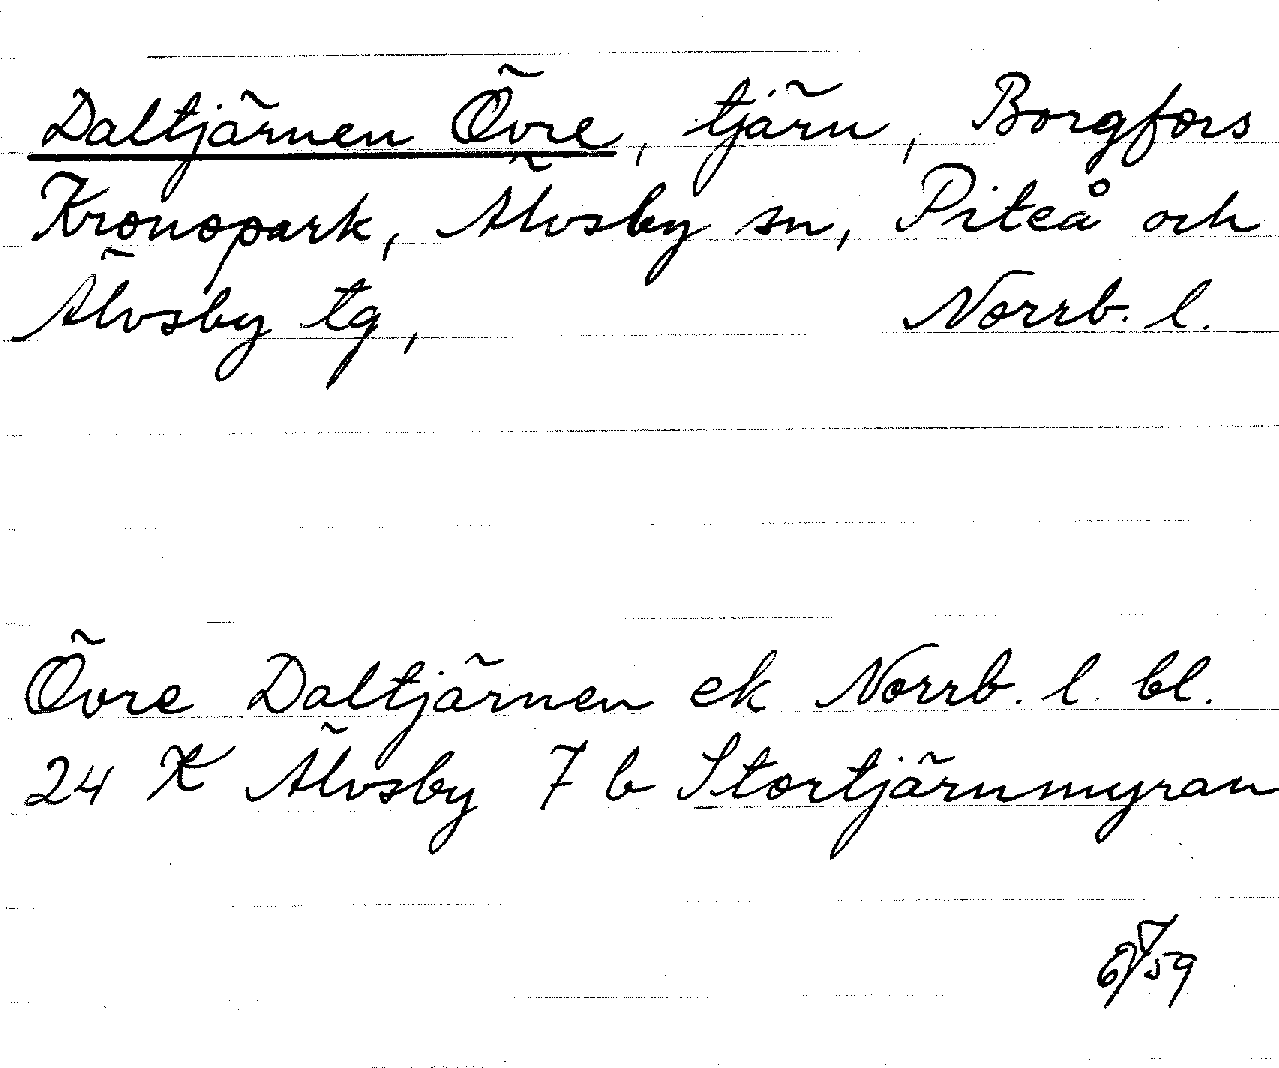 Daltjärnen Övre, tjärn, Borgfors
Kronopark, Älvsby sn, Piteå och
Älvsby tg, Norrb. l.
Övre Daltjärnen ek Norrb. l. bl.
24 K Älvsby 7 b Stortjärnmyran